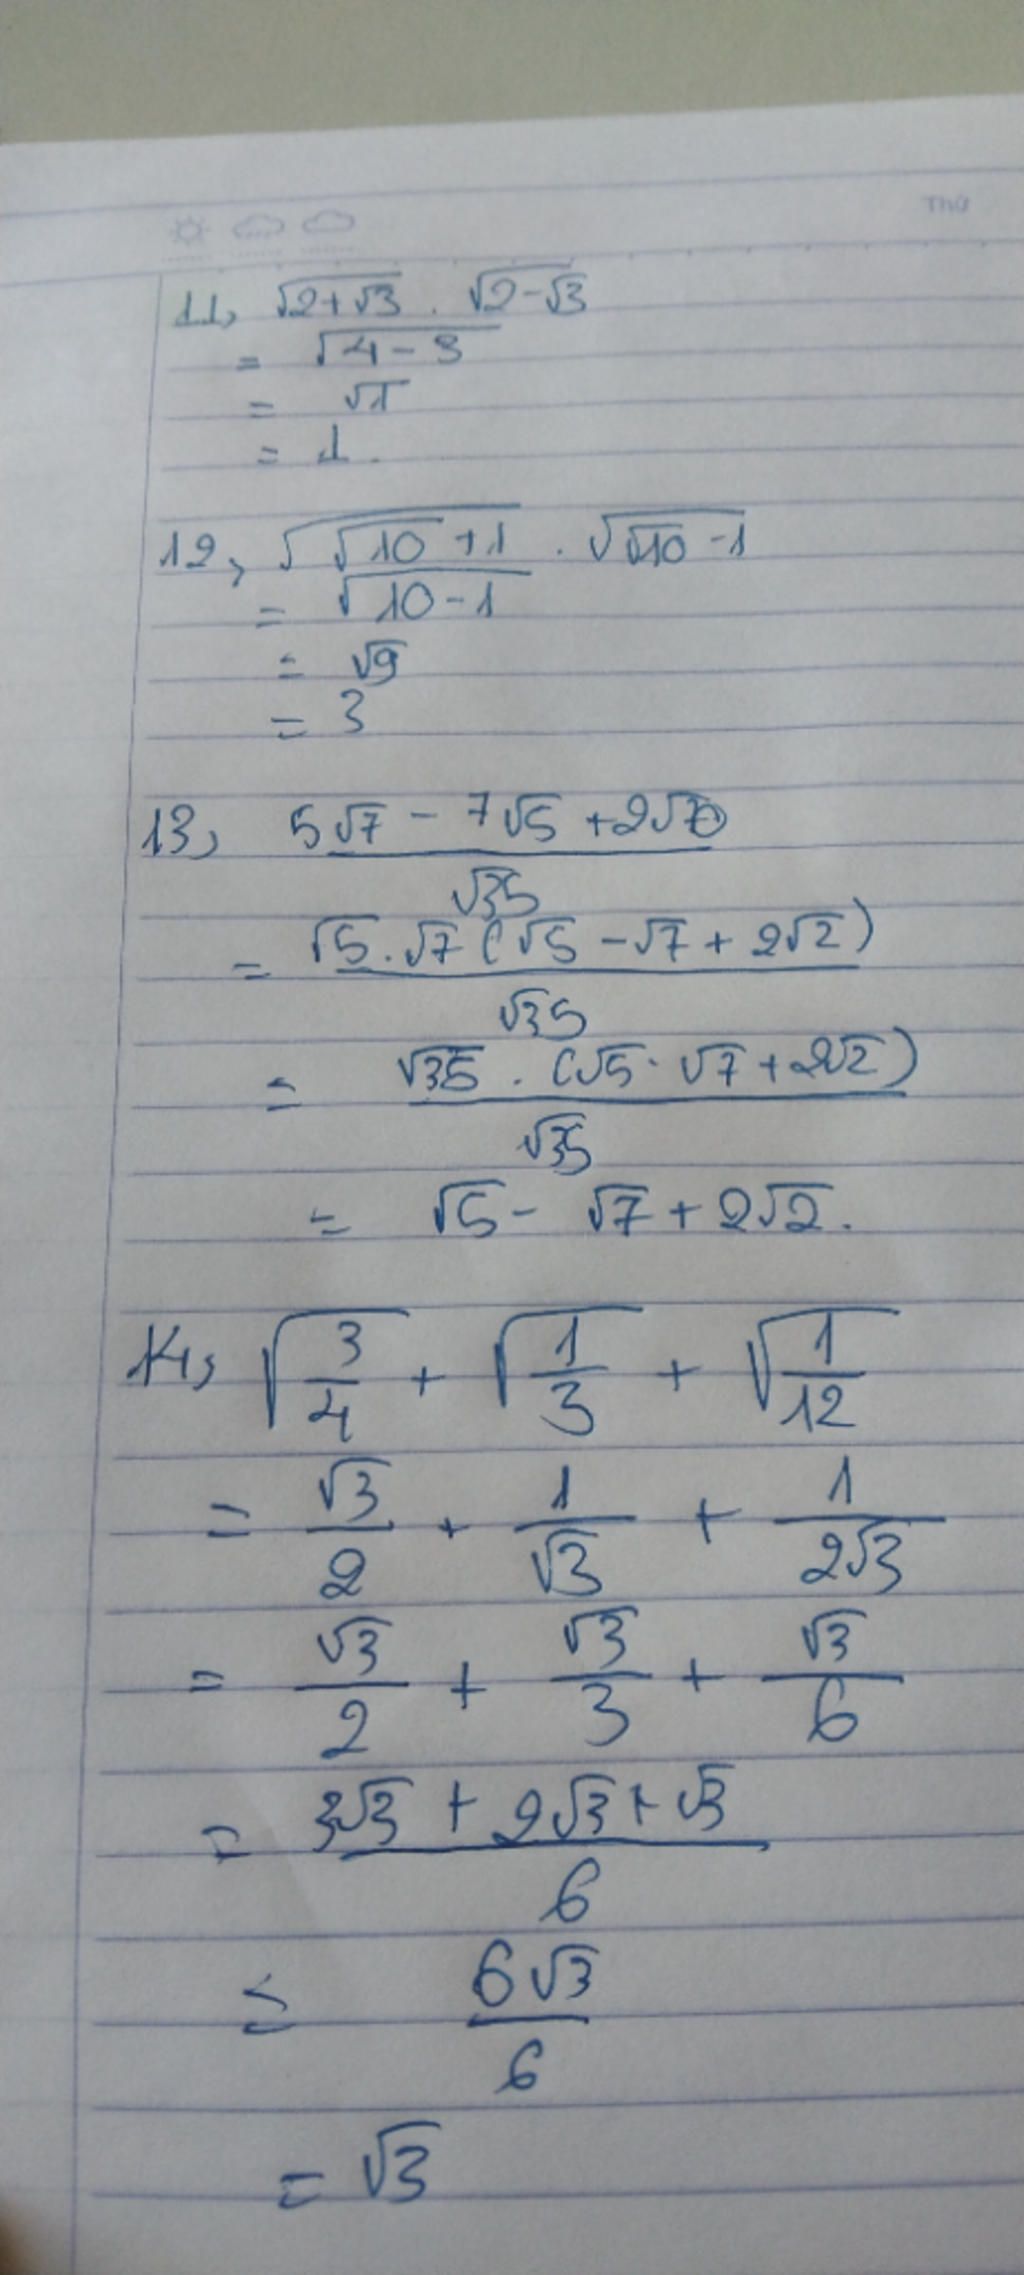 Thứ
11, √(2+√3) . √(2-√3)
= √(4-3)
= √1
= 1.
12, √(√10+1) . √(√10-1)
= √(10-1)
= √9
= 3
13, (5√7 - 7√5 + 2√70)/√35
= (√5.√7(√5 - √7 + 2√2))/√35
= (√35 . (√5 - √7 + 2√2))/√35
= √5 - √7 + 2√2.
14, √(3/4) + √(1/3) + √(1/12)
= √3/2 + 1/√3 + 1/(2√3)
= √3/2 + √3/3 + √3/6
= (3√3 + 2√3 + √3)/6
= 6√3/6
= √3